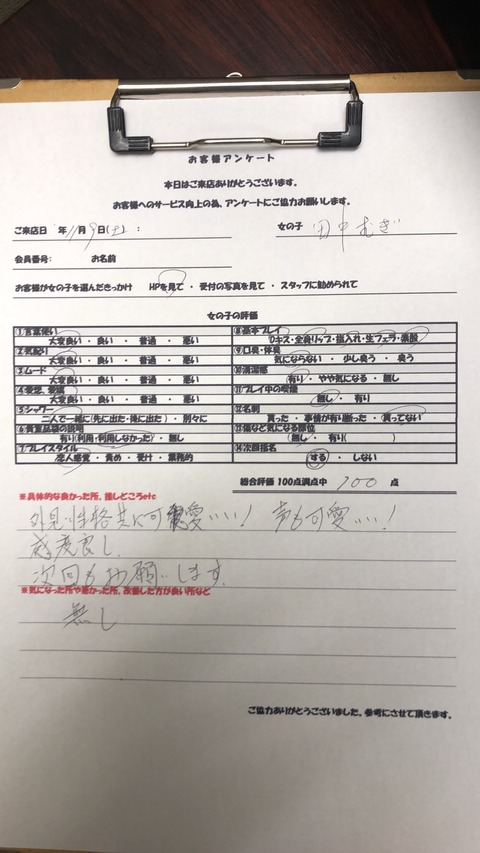 お客様アンケート
本日はご来店ありがとうございます。
お客様へのサービス向上の為、アンケートにご協力お願いします。
ご来店日 年11月9日(土) :
女の子 田中むぎ
会員番号: お名前
お客様が女の子を選んだきっかけ HPを見て ・ 受付の写真を見て ・ スタッフに勧められて
女の子の評価
①言葉使い
大変良い ・ 良い ・ 普通 ・ 悪い
②気配り
大変良い ・ 良い ・ 普通 ・ 悪い
③ムード
大変良い ・ 良い ・ 普通 ・ 悪い
④愛想、愛嬌
大変良い ・ 良い ・ 普通 ・ 悪い
⑤シャワー
二人で一緒に(先に出た・後に出た) ・ 別々に
⑥貴重品袋の説明
有り(利用・利用しなかった) ・ 無し
⑦プレイスタイル
恋人感覚 ・ 責め ・ 受け ・ 業務的
⑧基本プレイ
Dキス・全身リップ・指入れ・生フェラ・素股
⑨口臭・体臭
気にならない ・ 少し臭う ・ 臭う
⑩清潔感
有り ・ やや気になる ・ 無し
⑪プレイ中の喫煙
無し ・ 有り
⑫名刺
貰った ・ 事情が有り断った ・ 貰ってない
⑬傷など気になる部位
無し ・ 有り( )
⑭次回指名
する ・ しない
総合評価 100点満点中 100 点
※具体的な良かった所、推しどころetc
外見、性格共に可愛いい! 声も可愛いい!
感度良し
次回もお願いします。
※気になった所や悪かった所、改善した方が良い所など
無し
ご協力ありがとうございました。参考にさせて頂きます。